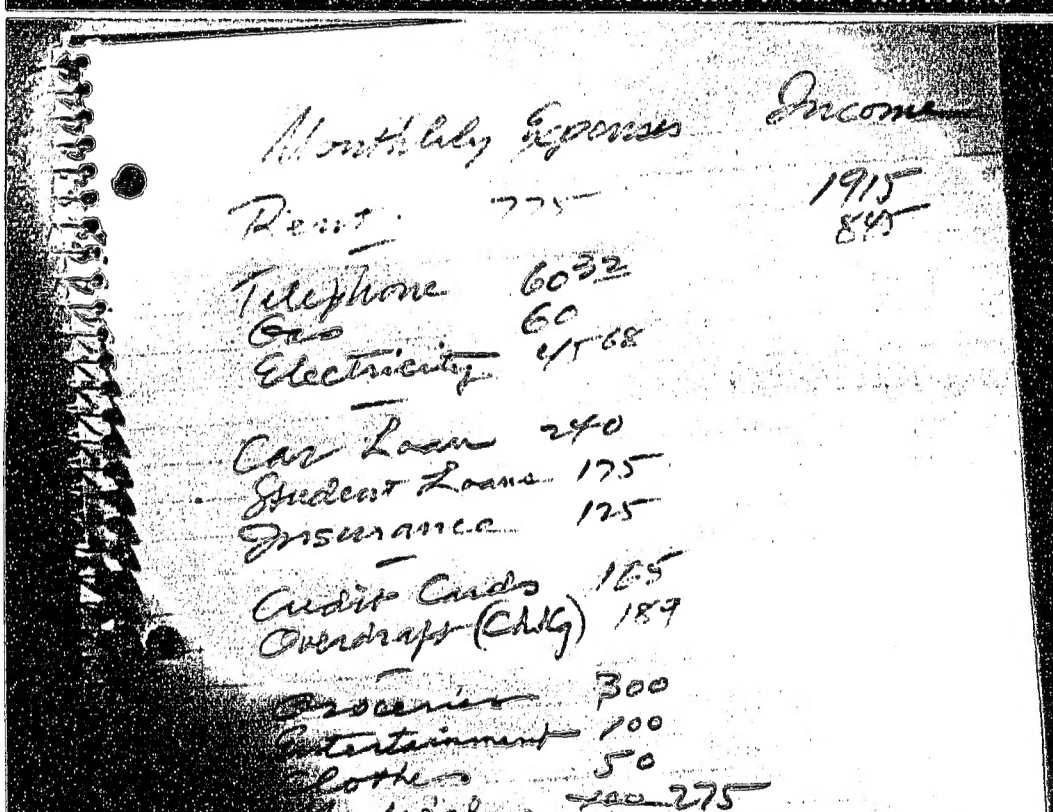 Monthlily Expenses Income
Rent. 775 1915
845
Telephone 60 32
Gas 60
Electricity 45 68
Car Loan 240
Student Loans 175
Insurance 125
Credit Cards 165
Overdraft (ChkG) 187
Groceries 300
Entertainment 100
Clothes 50
275